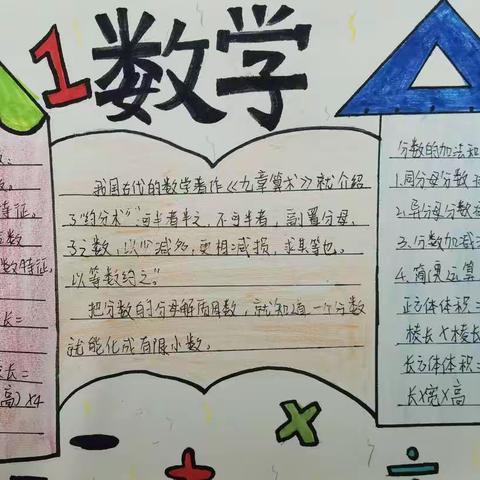 1
数学
数.
数。
特征。
数
数特征.
长=
长=
高)×4
我国古代的数学著作《九章算术》就介绍
了"约分术":"可半者半之,不可半者,副置分母、
子之数,以少减多,更相减损,求其等也。
以等数约之。"
把分数的分母解质因数,就知道一个分数
就能化成有限小数。
分数的加法和
1.同分母分数
2.异分母分数
3.分数加减
4.简便运算
正方体体积=
棱长×棱长
长方体体积=
长×宽×高
×
+
÷